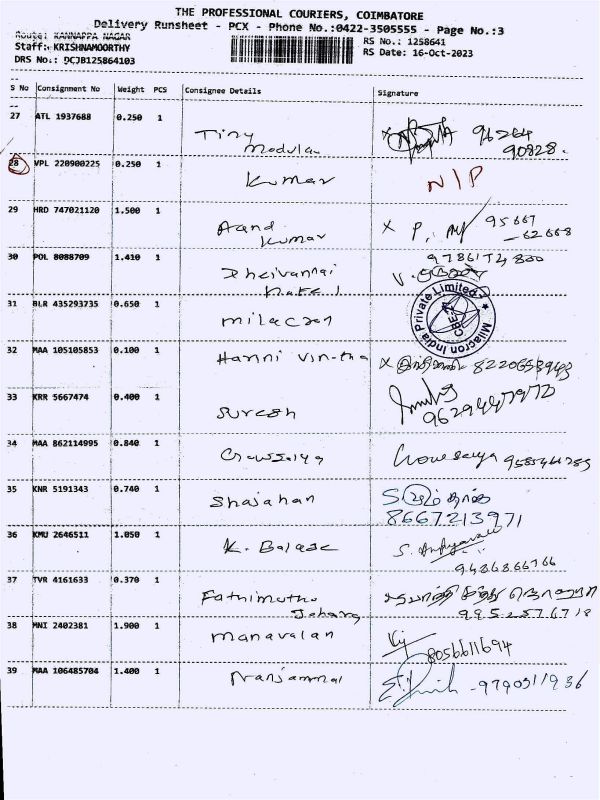 THE PROFESSIONAL COURIERS, COIMBATORE
Delivery Runsheet - PCX - Phone No.:0422-3505555 - Page No.:3
Route: KANNAPPA NAGAR
RS No.: 1258641
Staff: KRISHNAMOORTHY
RS Date: 16-Oct-2023
DRS No.: DCJB125864103
S No Consignment No Weight PCS Consignee Details Signature
27 ATL 1937688 0.250 1 Tiny
Modula 96264
90828.
28 VPL 220900225 0.250 1 Kumar N/P
29 HRD 747021120 1.500 1 Aand X P. 95667
Kumar -62668
30 POL 8088709 1.410 1 Dheivannai
Patel V.
31 BLR 435293735 0.650 1 milacron Milacron India Private Limited CBE-21
32 MAA 105105853 0.100 1 Hanni X
33 KRR 5667474 0.400 1 Suresh
34 MAA 862114995 0.840 1
35 KNR 5191343 0.740 1 Shajahan
8667213971
36 KMU 2646511 1.050 1 K. S.
9486866766
37 TVR 4161633 0.370 1 Fathimutho
9952576718
38 MNI 2402381 1.900 1 manavalan
8056611694
39 MAA 106485704 1.400 1 Nanjammal -9790311936